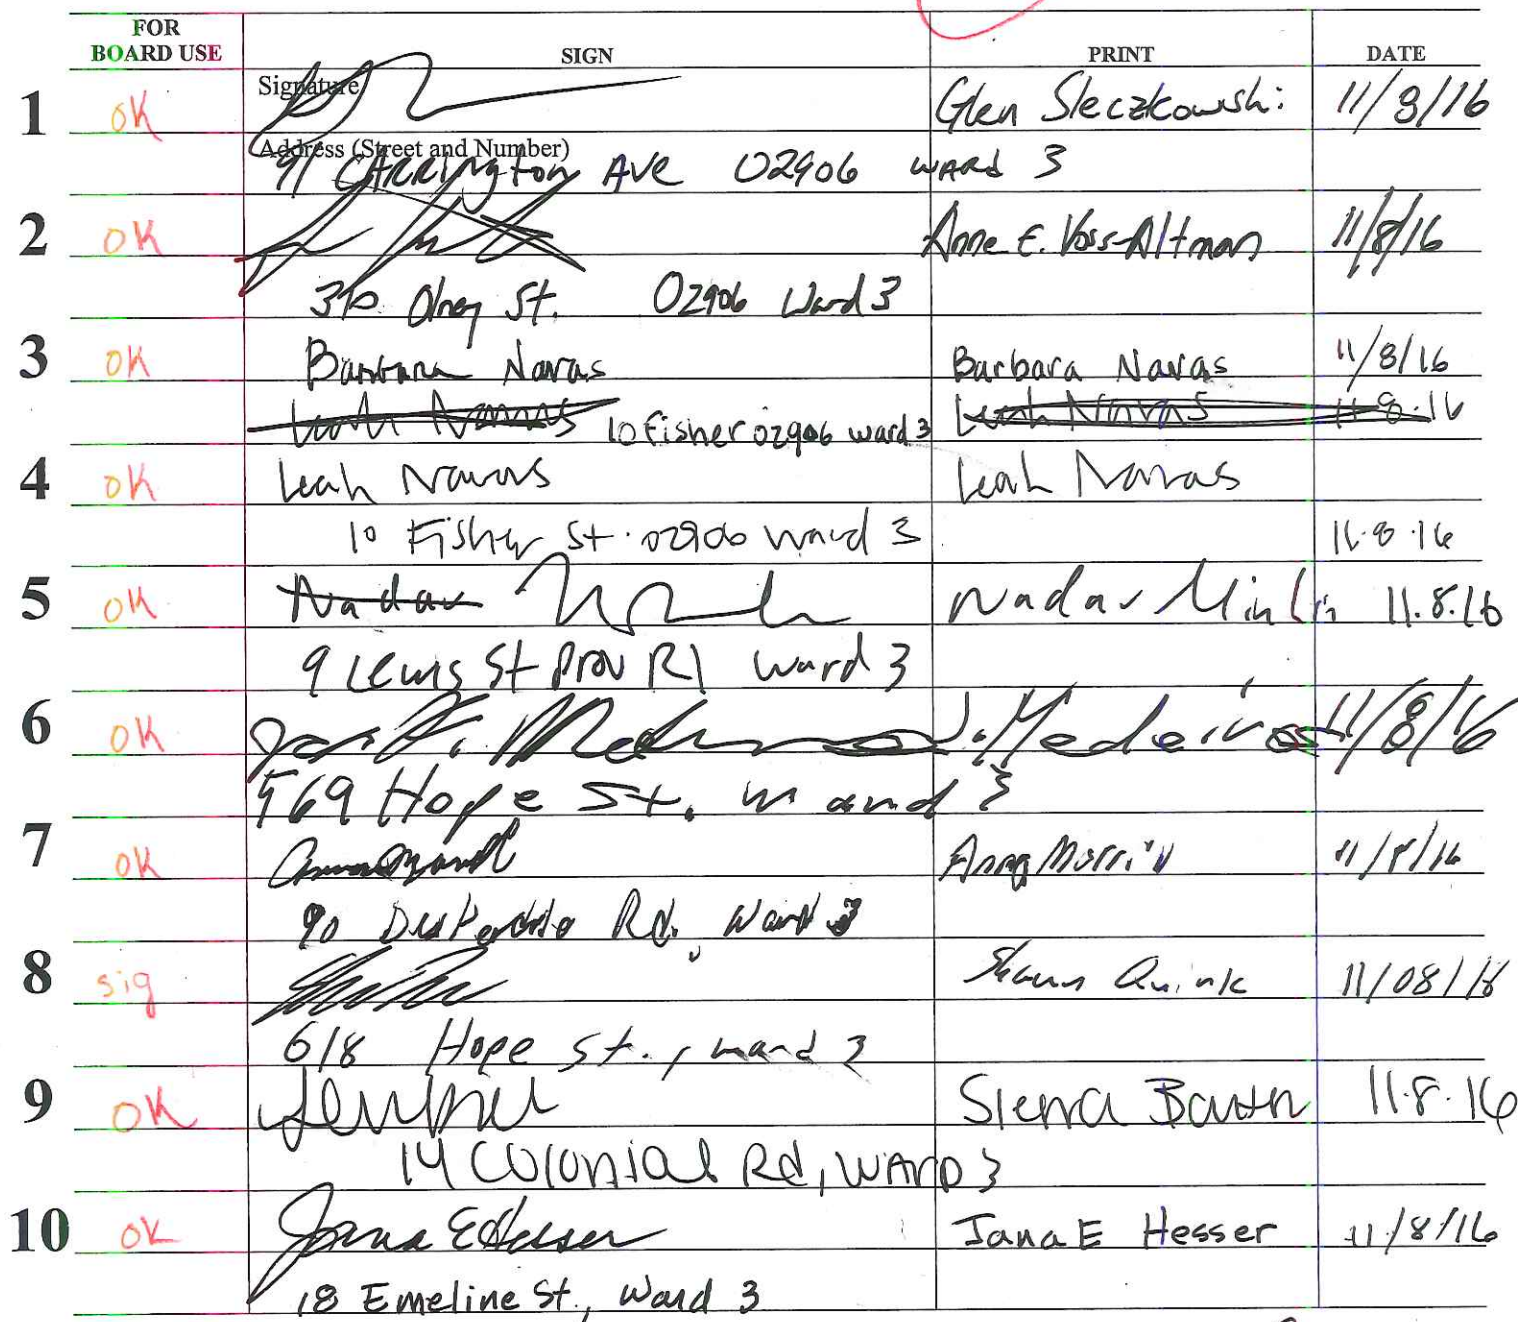 FOR
BOARD USE SIGN PRINT DATE
Signature
1 OK Glen Sleczkowski 11/8/16
Address (Street and Number)
91 CARRington AVE 02906 WARD 3
2 OK Anne E. Voss-Altman 11/8/16
310 Olney St. 02906 Ward 3
3 OK Barbara Navas Barbara Navas 11/8/16
Leah Navas 10 Fisher 02906 ward 3 Leah Navas 11.8.16
4 OK Leah Navas Leah Navas
10 Fisher St. 02906 Ward 3 11.8.16
5 OK Nadav Nadav 11.8.16
9 Lewis St Prov RI Ward 3
6 OK J. Medeiros 11/8/16
569 Hope St. Ward 3
7 OK Anna Morrill 11/8/16
90 Rd. Ward 3
8 sig Shaun Quink 11/08/16
618 Hope St., ward 3
9 OK Sierra 11.8.16
14 Colonial Rd, WARD 3
10 OK Jana E Hesser Jana E Hesser 11/8/16
18 Emeline St., Ward 3